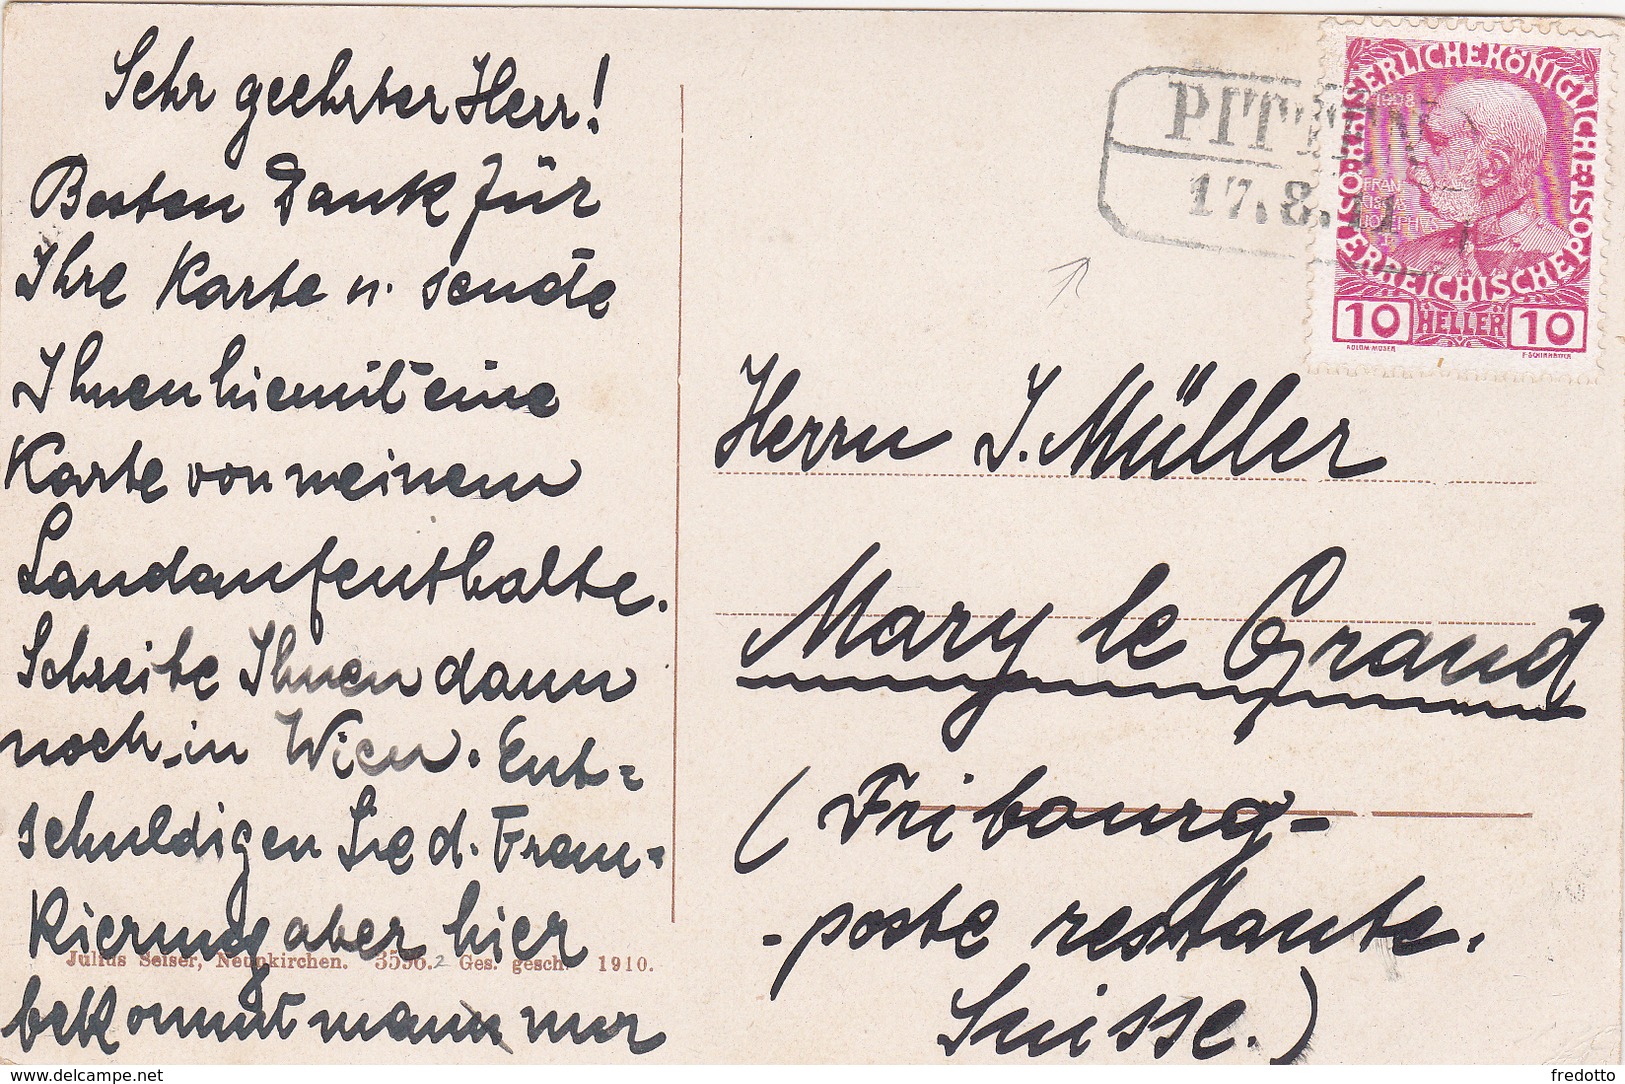 Sehr geehrter Herr!
Besten Dank für
Ihre Karte u. sende
Ihnen hiemit eine
Karte von meinem
Landaufenthalte.
Schreibe Ihnen dann
noch in Wien. Ent=
schuldigen Sie d. Fran=
kierung aber hier
bekommt man nur
Julius Seiser, Neunkirchen. 3596.2 Ges. gesch. 1910.
PITTEN
17.8.11
KAISERLICHEKÖNIGLICHE ÖSTERREICHISCHE POST
1908
FRAN
CISCVS
JOSEPH I
10 HELLER 10
KOLOM. MOSER F. SCHIRNBÖCK
Herrn J. Müller
Mary le Grand
(Fribourg-
-poste restante.
Suisse.)
www.delcampe.net
fredotto